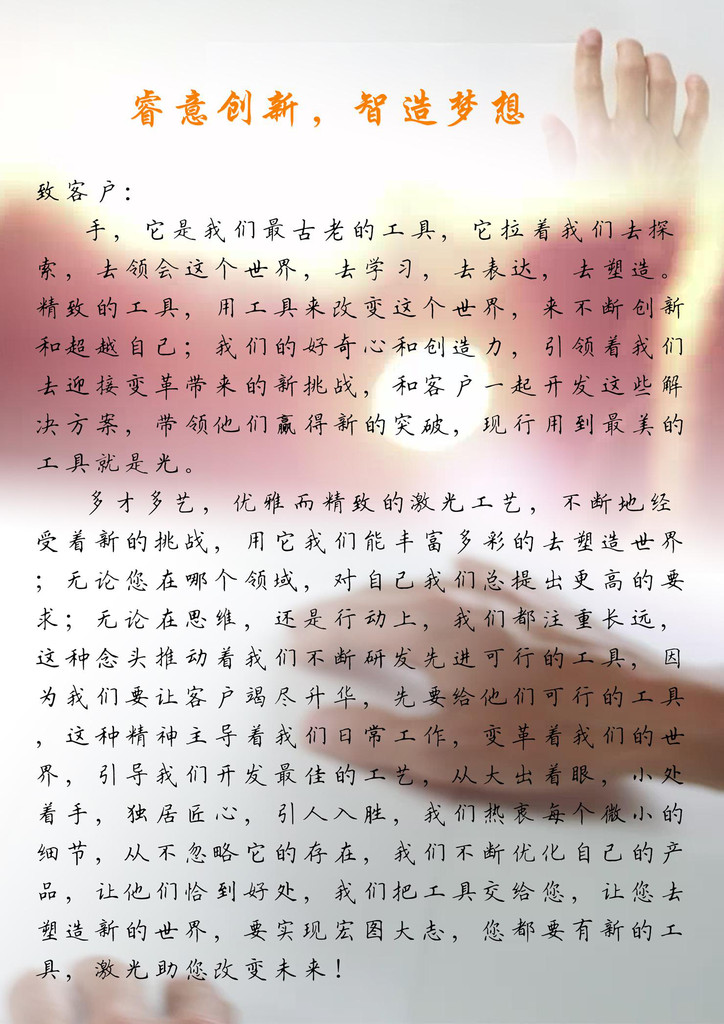 睿意创新，智造梦想
致客户：
手，它是我们最古老的工具，它拉着我们去探
索，去领会这个世界，去学习，去表达，去塑造。
精致的工具，用工具来改变这个世界，来不断创新
和超越自己；我们的好奇心和创造力，引领着我们
去迎接变革带来的新挑战，和客户一起开发这些解
决方案，带领他们赢得新的突破，现行用到最美的
工具就是光。
多才多艺，优雅而精致的激光工艺，不断地经
受着新的挑战，用它我们能丰富多彩的去塑造世界
；无论您在哪个领域，对自己我们总提出更高的要
求；无论在思维，还是行动上，我们都注重长远，
这种念头推动着我们不断研发先进可行的工具，因
为我们要让客户竭尽升华，先要给他们可行的工具
，这种精神主导着我们日常工作，变革着我们的世
界，引导我们开发最佳的工艺，从大出着眼，小处
着手，独居匠心，引人入胜，我们热衷每个微小的
细节，从不忽略它的存在，我们不断优化自己的产
品，让他们恰到好处，我们把工具交给您，让您去
塑造新的世界，要实现宏图大志，您都要有新的工
具，激光助您改变未来！